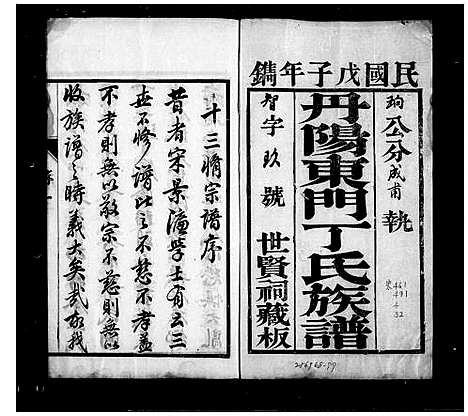 民國戊子年鐫
珣公分成甫執
丹陽東門丁氏族譜
智字玖號
世賢祠藏板
十三脩宗譜序
昔者宋景濂學士有云三
世不修譜比之不慈不孝蓋
不孝則無以敬宗不慈則無以
收族譜之時義大矣哉
286968-99